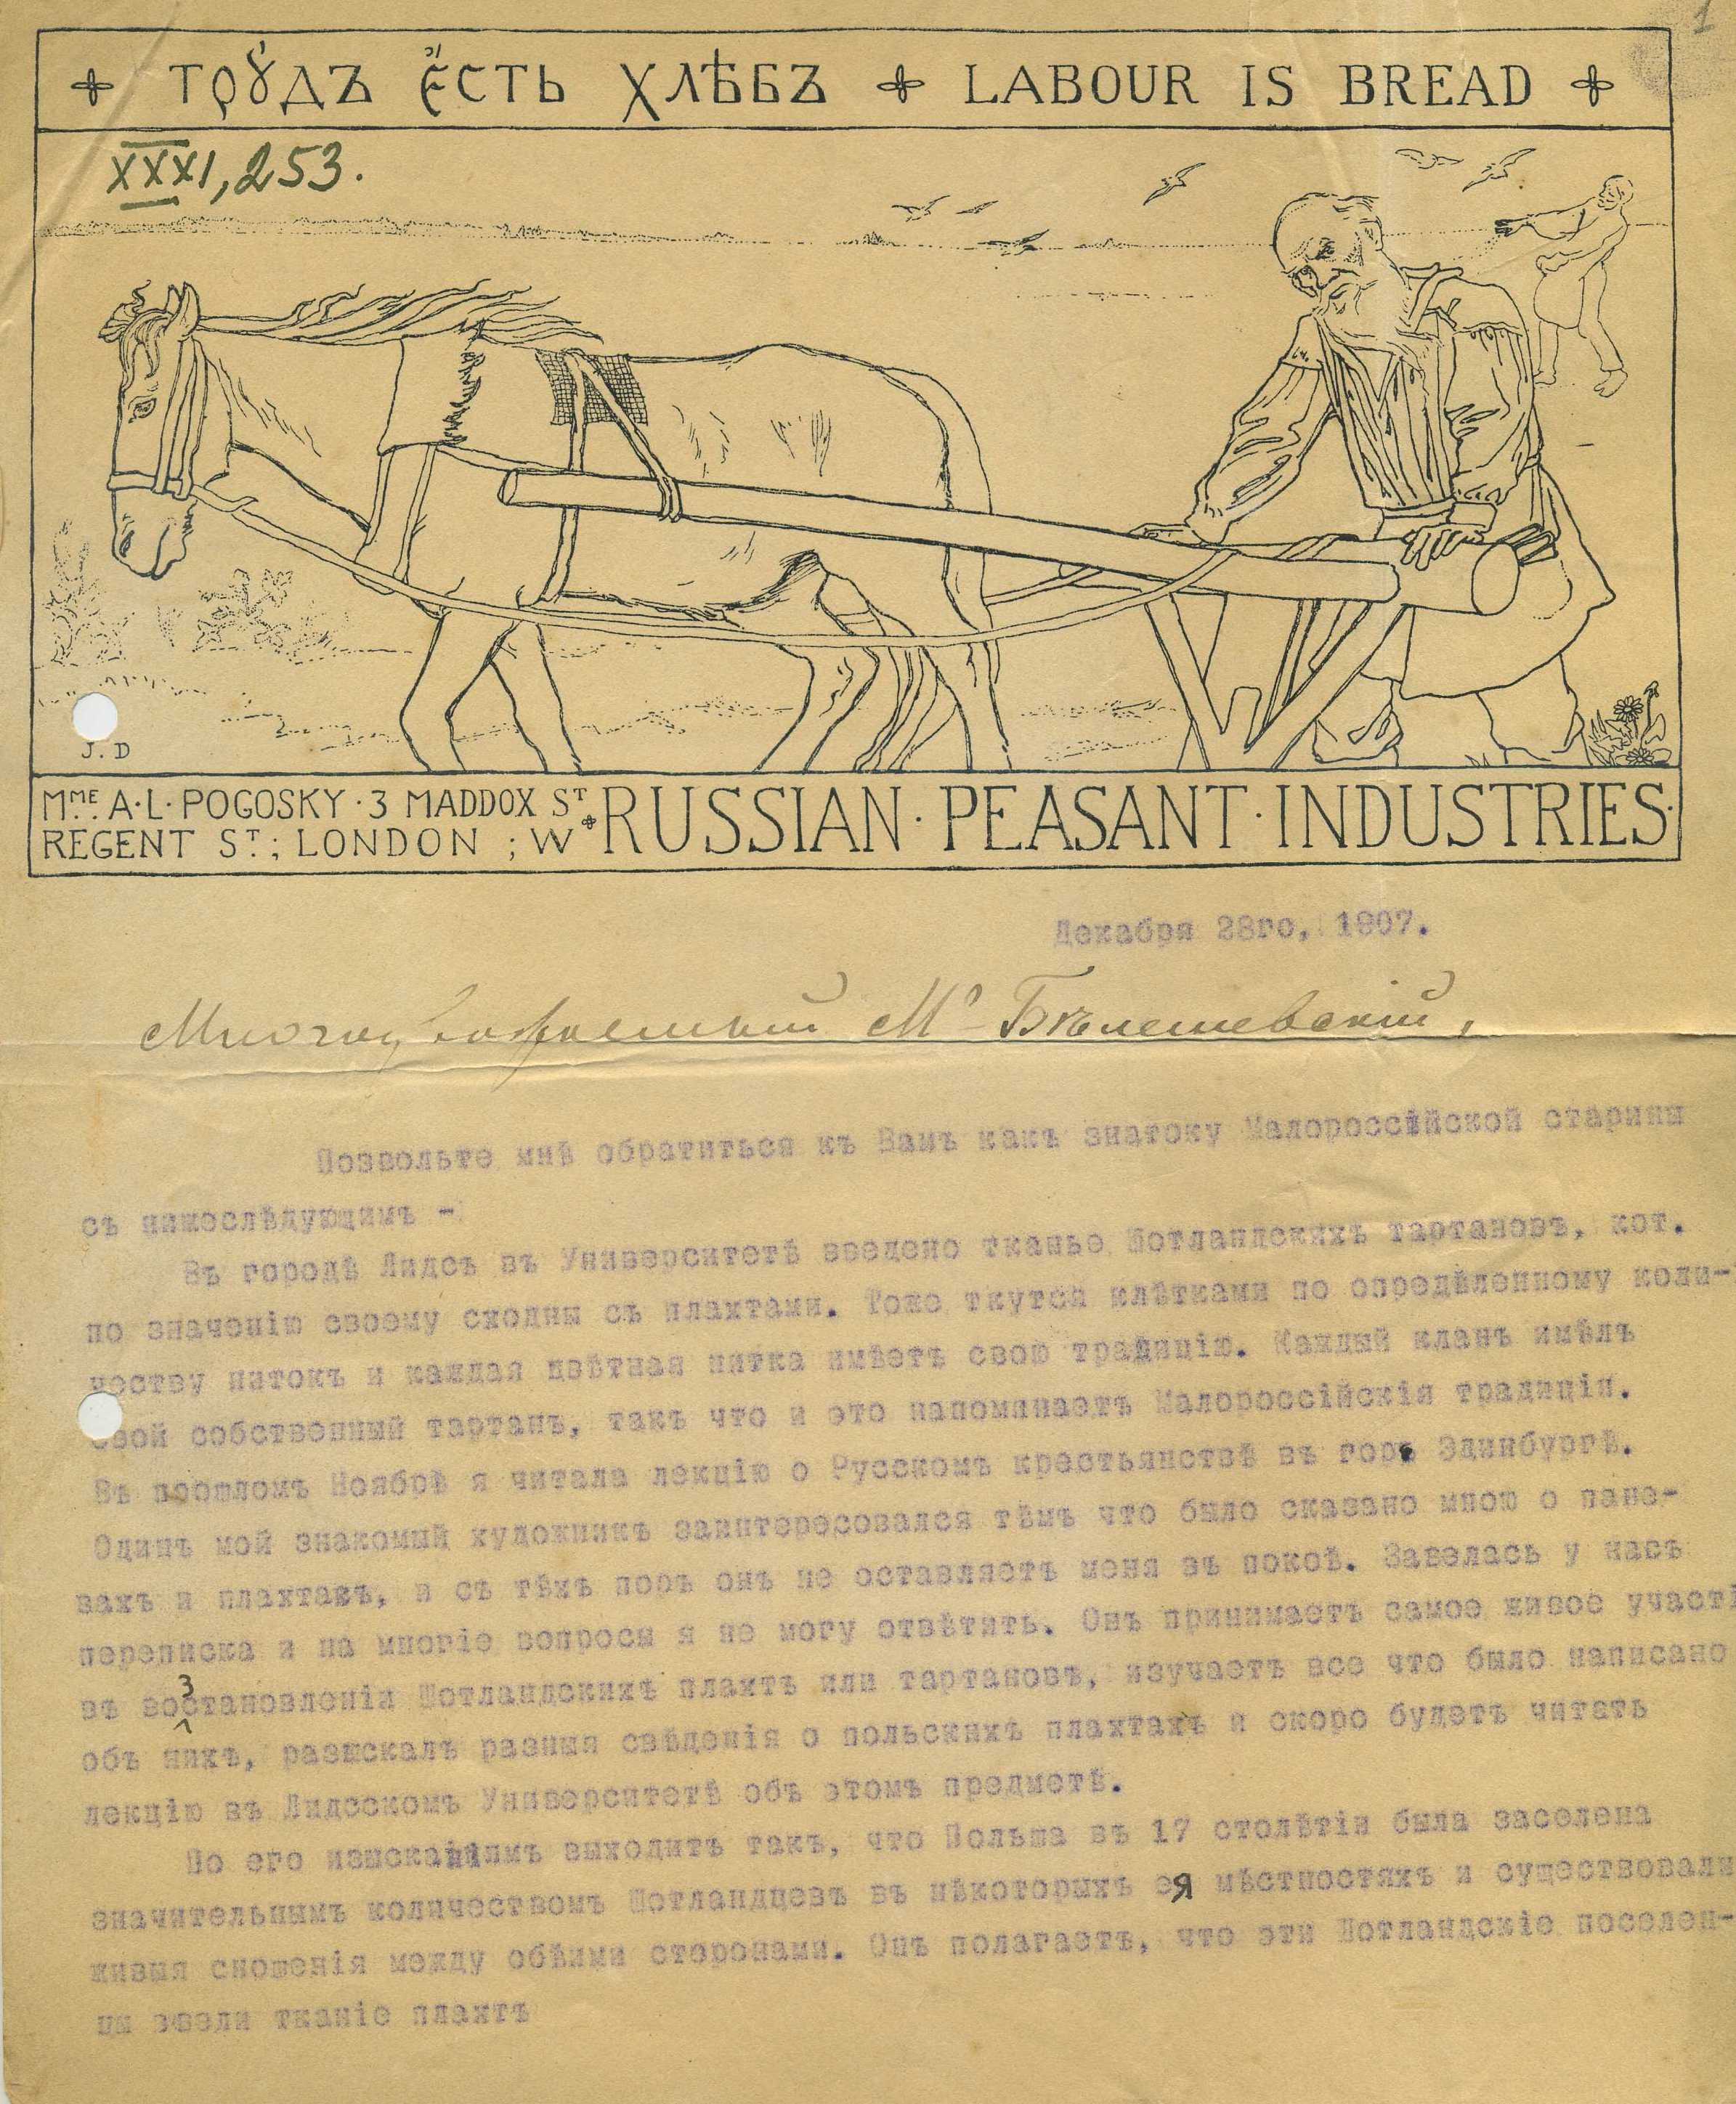 1
ТРꙊДЪ ЕСТЬ ХЛѢБЪ LABOUR IS BREAD
XXXI, 253.
J. D
MME. A·L·POGOSKY·3 MADDOX ST.
REGENT ST.; LONDON ; W
RUSSIAN·PEASANT·INDUSTRIES·
Декабря 28го, 1907.
Многоуважаемый Mr Бѣляшевскій,
Позвольте мнѣ обратиться къ Вамъ какъ знатоку Малороссійской старины
съ нижеслѣдующимъ -
Въ городѣ Лидсъ въ Университетѣ введено тканье Шотландскихъ тартановъ, кот.
по значенію своему сходны съ плахтами. Тоже ткутся клѣтками по опредѣленному коли-
честву нитокъ и каждая цвѣтная нитка имѣетъ свою традицію. Каждый кланъ имѣлъ
свой собственный тартанъ, такъ что и это напоминаетъ Малороссійскія традиціи.
Въ прошломъ Ноябрѣ я читала лекцію о Русскомъ крестьянствѣ въ гор. Эдинбургѣ.
Одинъ мой знакомый художникъ заинтересовался тѣмъ что было сказано мною о пане-
вахъ и плахтахъ, и съ тѣхъ поръ онъ не оставляетъ меня въ покоѣ. Завелась у насъ
переписка и на многіе вопросы я не могу отвѣтить. Онъ принимаетъ самое живое участі
въ возстановленіи Шотландскихъ плахтъ или тартановъ, изучаетъ все что было написано
объ нихъ, разыскалъ разныя свѣденія о польскихъ плахтахъ и скоро будетъ читать
лекцію въ Лидсскомъ Университетѣ объ этомъ предметѣ.
По его изысканіямъ выходитъ такъ, что Польша въ 17 столѣтіи была заселена
значительнымъ количествомъ Шотландцевъ въ нѣкоторыхъ ея мѣстностяхъ и существовали
живыя сношенія между обѣими сторонами. Онъ полагаетъ, что эти Шотландскіе поселен-
цы ввели тканіе плахтъ